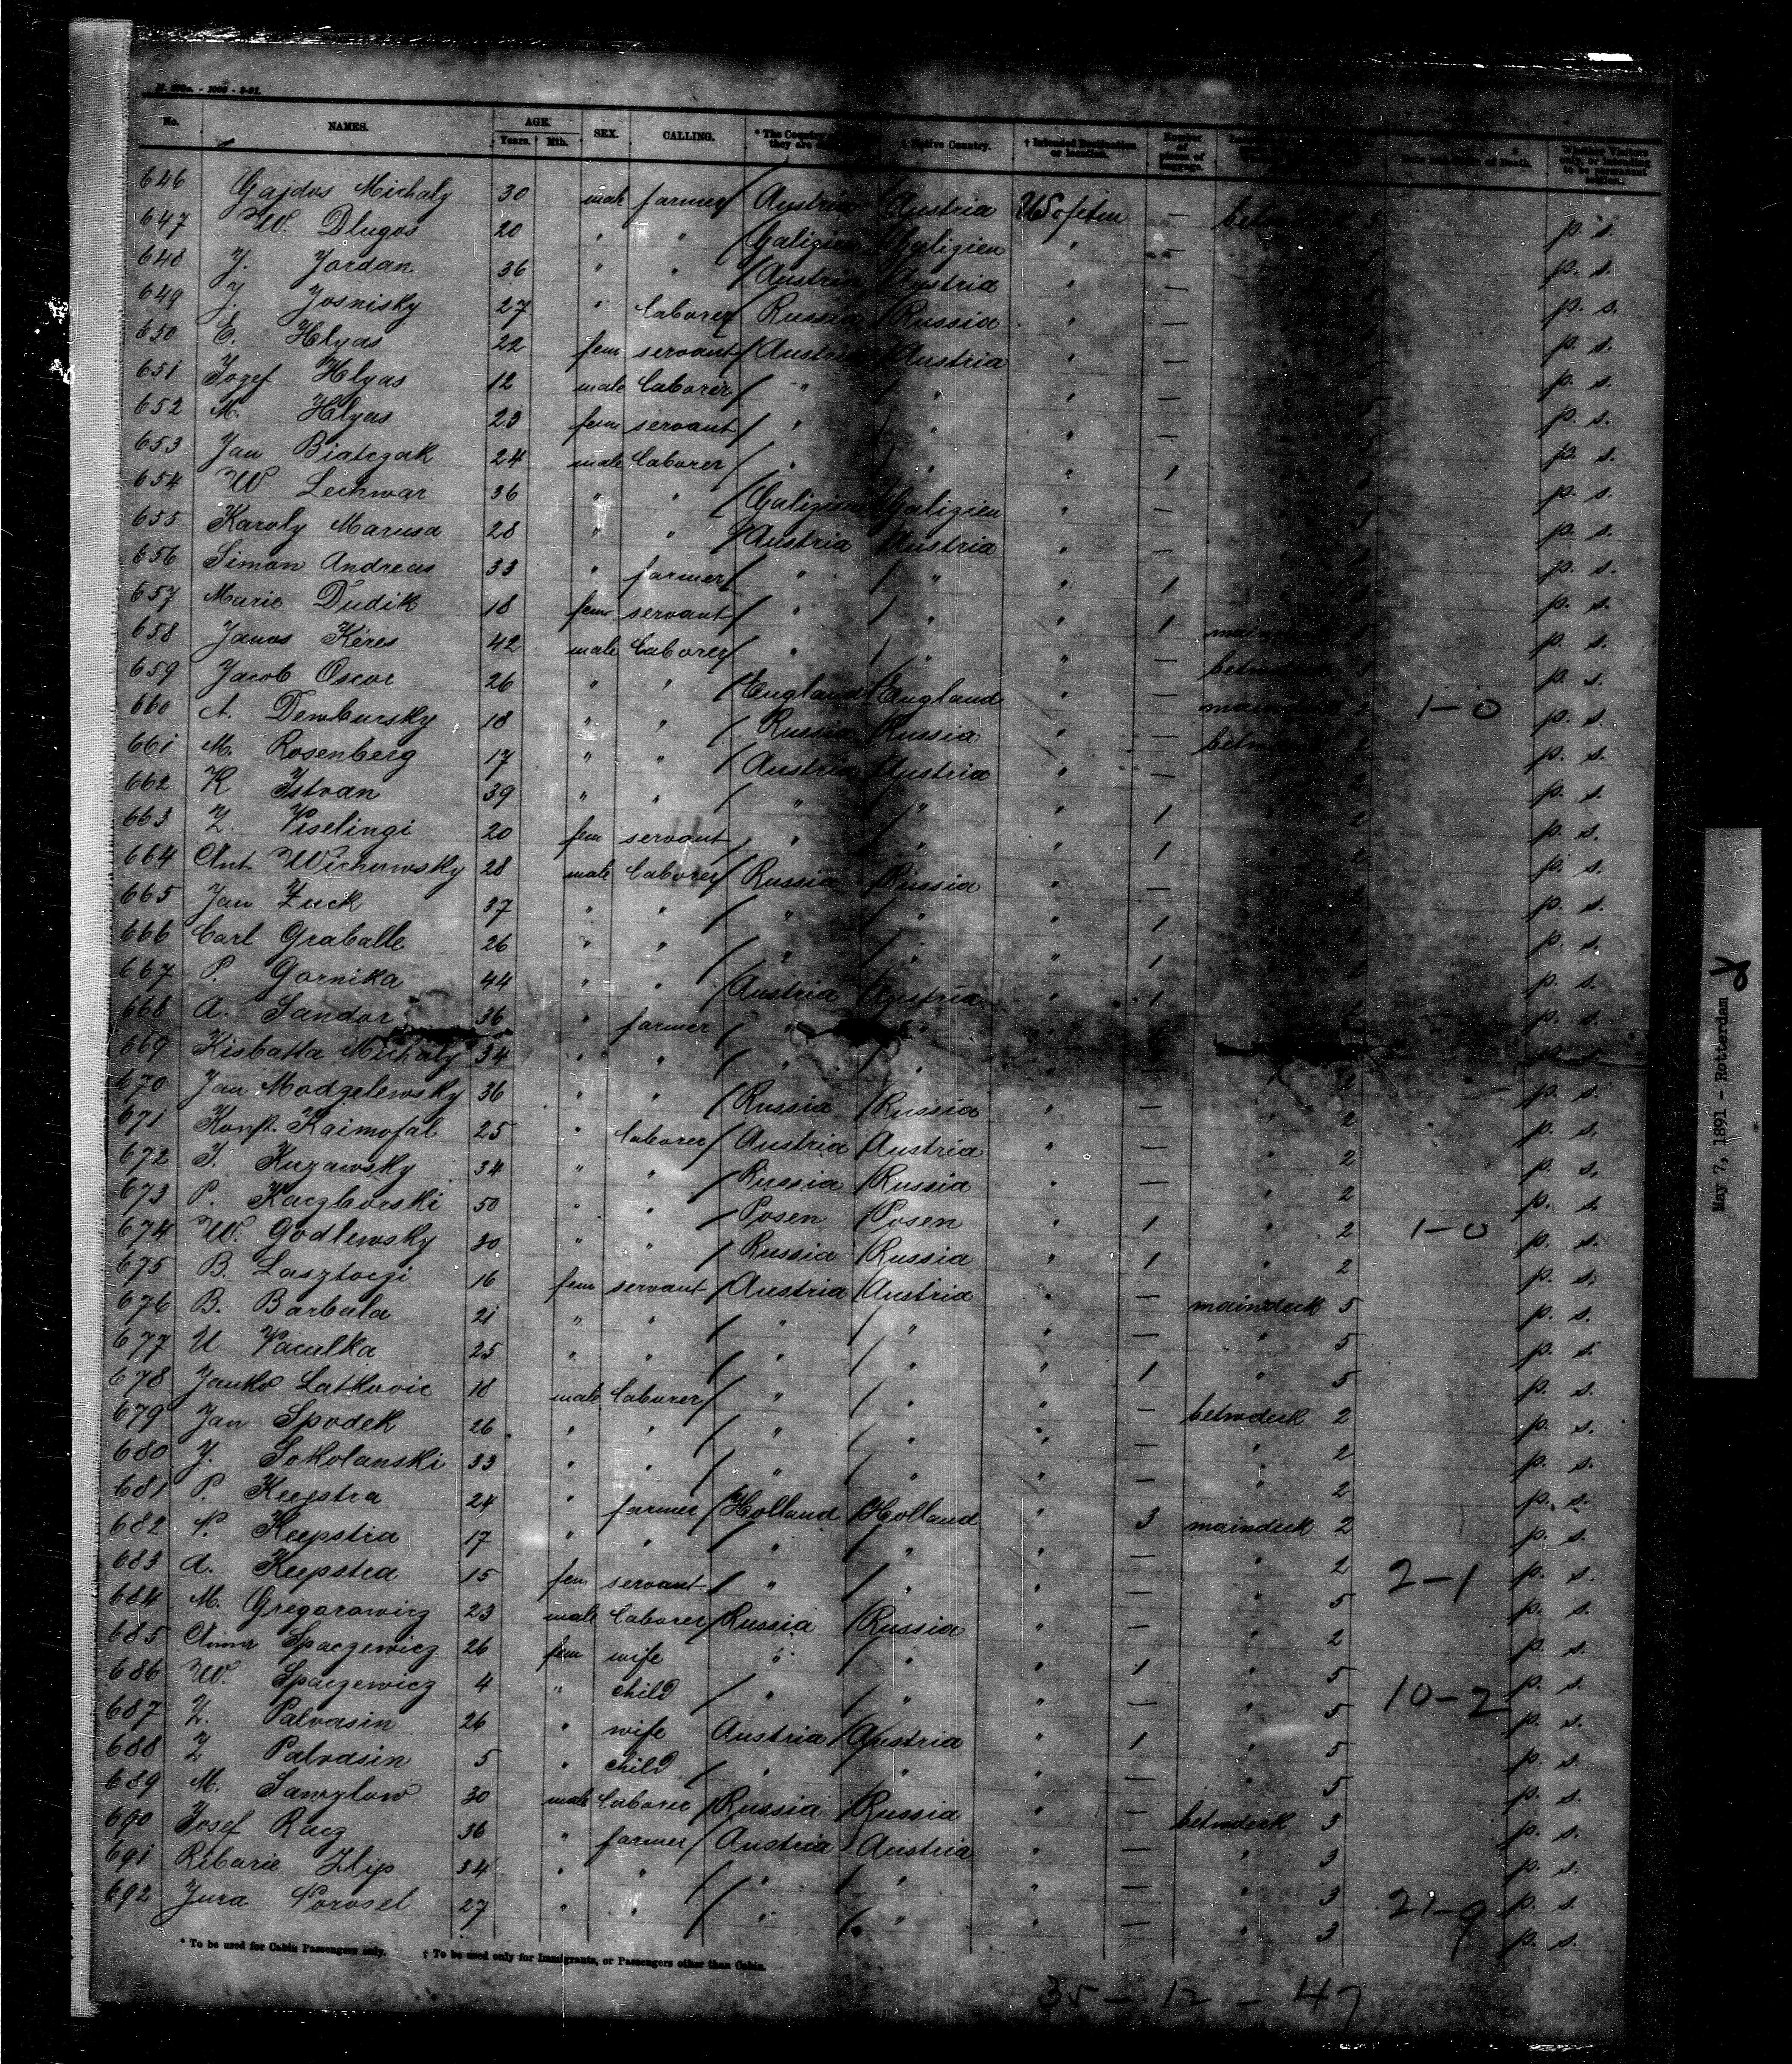 No. NAMES. AGE. Years. Mth. SEX. CALLING. * The Country they are Native Country. † Intended Destination or location. Number of pieces of baggage. Date and Cause of Death. Whether Visitors only, or intending to be permanent settlers.
646 Gajdos Michaly 30 male farmer Austria Austria — p. s.
647 W. Dlugos 20 " " Galizien Galizien " — p. s.
648 J. Jordan 36 " " Austria Austria " — p. s.
649 J. Josnisky 27 " laborer Russia Russia " — p. s.
650 E. Hlyas 22 fem servant Austria Austria " — p. s.
651 Josef Hlyas 12 male laborer " " " — 5 p. s.
652 M. Hlyas 23 fem servant " " " — 5 p. s.
653 Jan Biatczak 24 male laborer " " " 1 p. s.
654 W. Lechwar 36 " " Galizien Galizien " — p. s.
655 Karoly Marusa 28 " " Austria Austria " — p. s.
656 Simon Andreas 33 " farmer " " " 1 p. s.
657 Marie Dudik 18 fem servant " " " 1 p. s.
658 Janos Keres 42 male laborer " " " — p. s.
659 Jacob Oscar 26 " " England England " — 2 1-0 p. s.
660 A. Dembursky 18 " " Russia Russia " — 2 p. s.
661 M. Rosenberg 17 " " Austria Austria " — 2 p. s.
662 K Istvan 39 " " " " " 1 2 p. s.
663 Z. Viselingi 20 fem servant " " " 1 2 p. s.
664 Ant. Wichowsky 28 male laborer Russia Russia " — 2 p. s.
665 Jan Zuck 37 " " " " " 1 p. s.
666 Carl Graballe 26 " " " " " 1 2 p. s.
667 P. Gornika 44 " " Austria Austria " 1 2 p. s.
668 A. Sandor 36 " farmer " p. s.
669 Kisbatta Michaly 34 " " " " — 2 p. s.
670 Jan Modzelewsky 36 " " Russia Russia " — 2 p. s.
671 Konst. Kaimofal 25 " laborer Austria Austria " — " 2 p. s.
672 J. Kuzawsky 34 " " Russia Russia " — " 2 p. s.
673 P. Kaczborski 50 " " Posen Posen " 1 " 2 1-0 p. s.
674 W. Godlewsky 30 " " Russia Russia " 1 " 2 p. s.
675 B. Lasztoczi 16 fem servant Austria Austria " — maindeck 5 p. s.
676 B. Barbala 21 " " " " " — " 5 p. s.
677 U Vaculka 25 " " " " " 1 " 5 p. s.
678 Janko Latkovic 18 male laborer " " " — betwdeck 2 p. s.
679 Jan Spodek 26 " " " " " — " 2 p. s.
680 J. Sokolanski 33 " " " " " — " 2 p. s.
681 P. Keepstra 24 " farmer Holland Holland " 3 maindeck 2 p. s.
682 P. Keepstra 17 " " " " " — " 2 2-1 p. s.
683 A. Keepstra 15 fem servant " " " — " 5 p. s.
684 M. Gregorowicz 23 male laborer Russia Russia " — " 2 p. s.
685 Anna Spaczewicz 26 fem wife " " " 1 " 5 p. s.
686 W. Spaczewicz 4 " child " " " — " 5 10-2 p. s.
687 Z. Palvasin 26 " wife Austria Austria " 1 " 5 p. s.
688 Z Palvasin 5 " child " " " — " 5 p. s.
689 M. Sawylow 30 male laborer Russia Russia " — betwdeck 3 p. s.
690 Josef Racz 36 " farmer Austria Austria " — " 3 p. s.
691 Ribarie Filip 34 " " " " " — " 3 p. s.
692 Jura Porosel 27 " " " " " — " 3 21-9 p. s.
* To be used for Cabin Passengers only. † To be used only for Immigrants, or Passengers other than Cabin.
35 - 12 - 47
May 7, 1891 - Rotterdam